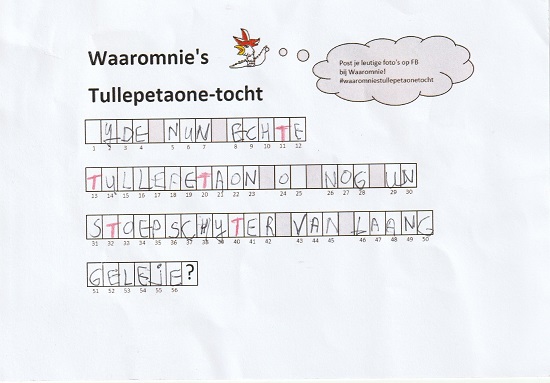 Waaromnie's
Tullepetaone-tocht
Post je leutige foto's op FB
bij Waaromnie!
#waaromniestullepetaonetocht
YDE NUN ECHTE
1 2 3 4 5 6 7 8 9 10 11 12
TULLEPETAON O NOG UN
13 14 15 16 17 18 19 20 21 22 23 24 25 26 27 28 29 30
STOEPSCHYTER VAN LAANG
31 32 33 34 35 36 37 38 39 40 41 42 43 44 45 46 47 48 49 50
GELEIE?
51 52 53 54 55 56